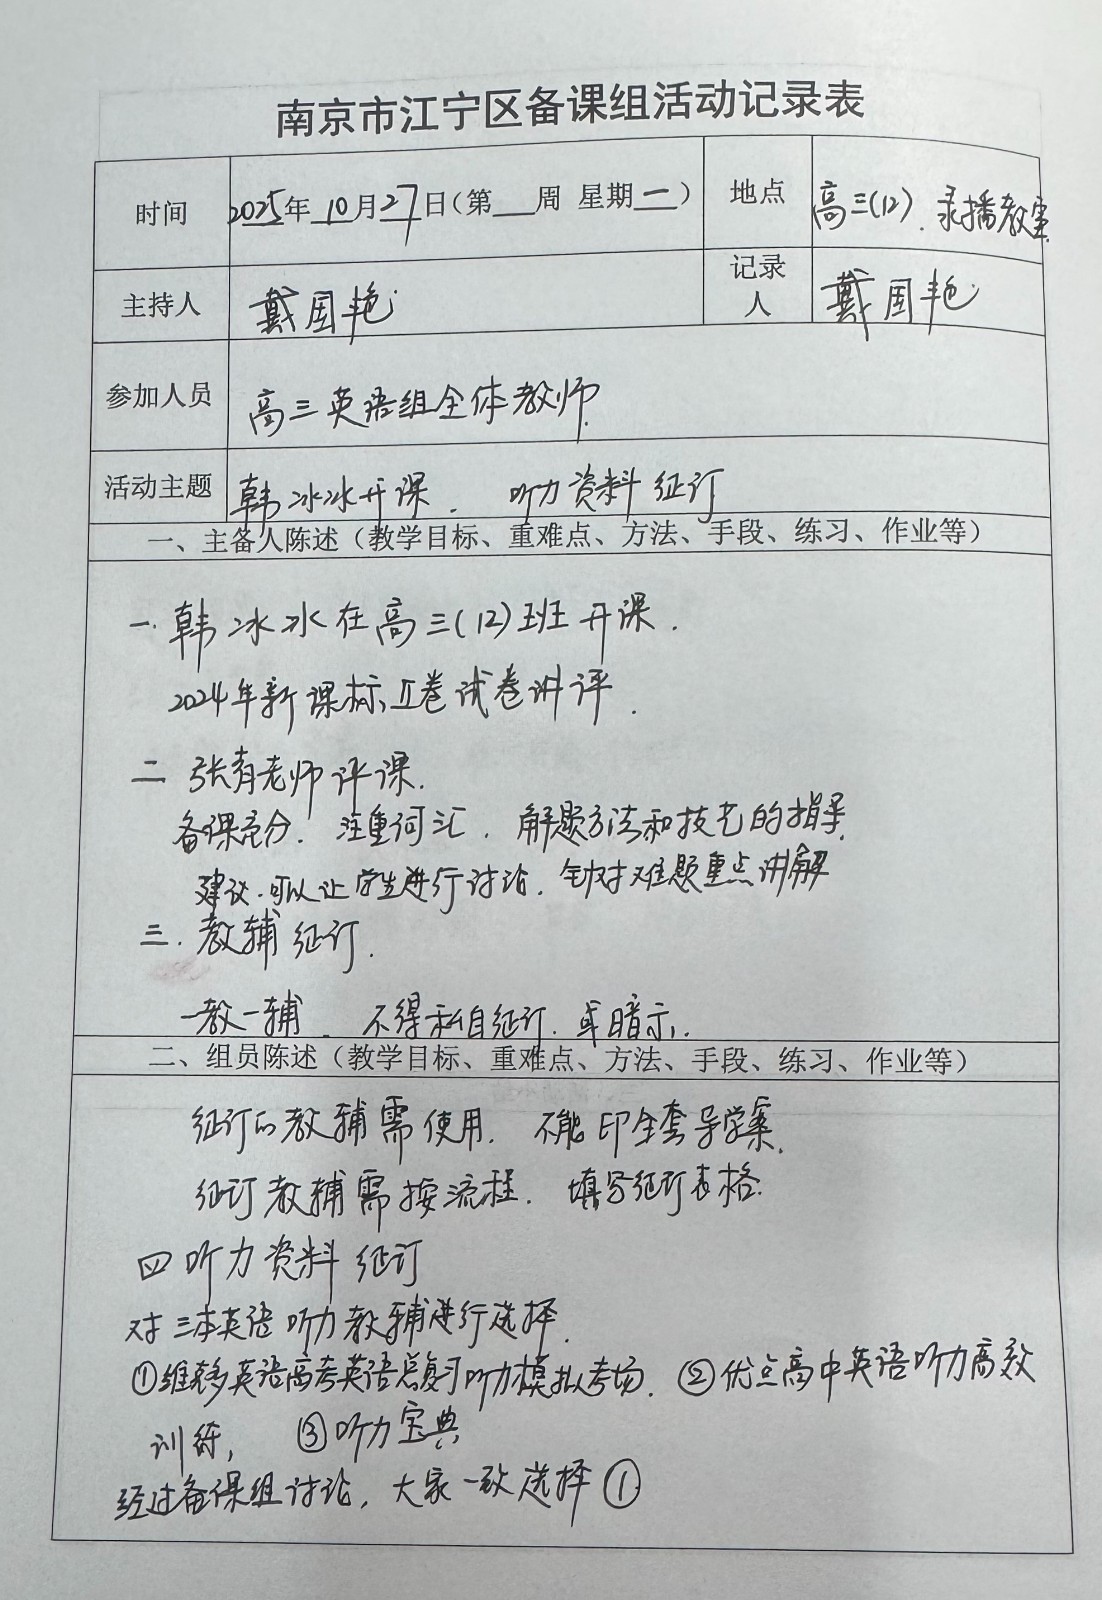 南京市江宁区备课组活动记录表
时间 2025年10月27日（第___周 星期一） 地点 高三(12)、录播教室
主持人 戴国艳 记录人 戴国艳
参加人员 高三英语组全体教师.
活动主题 韩冰冰开课. 听力资料征订
一、主备人陈述（教学目标、重难点、方法、手段、练习、作业等）
一. 韩冰冰在高三(12)班开课.
2024年新课标Ⅱ卷试卷讲评.
二 张青老师评课.
备课充分. 注重词汇. 解题方法和技艺的指导.
建议.可以让学生进行讨论. 针对难题重点讲解
三. 教辅征订.
一教一辅. 不得私自征订.或暗示.
二、组员陈述（教学目标、重难点、方法、手段、练习、作业等）
征订的教辅需使用. 不能印全套导学案.
征订教辅需按流程. 填写征订表格.
四 听力资料征订
对三本英语听力教辅进行选择.
①维多英语高考英语总复习听力模拟考场. ②优点高中英语听力高效
训练, ③听力宝典
经过备课组讨论, 大家一致选择①.